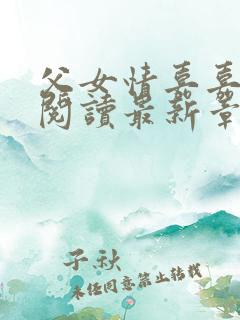 父女情嘉嘉
閱讀最新章
子秋
未经同意禁止转载